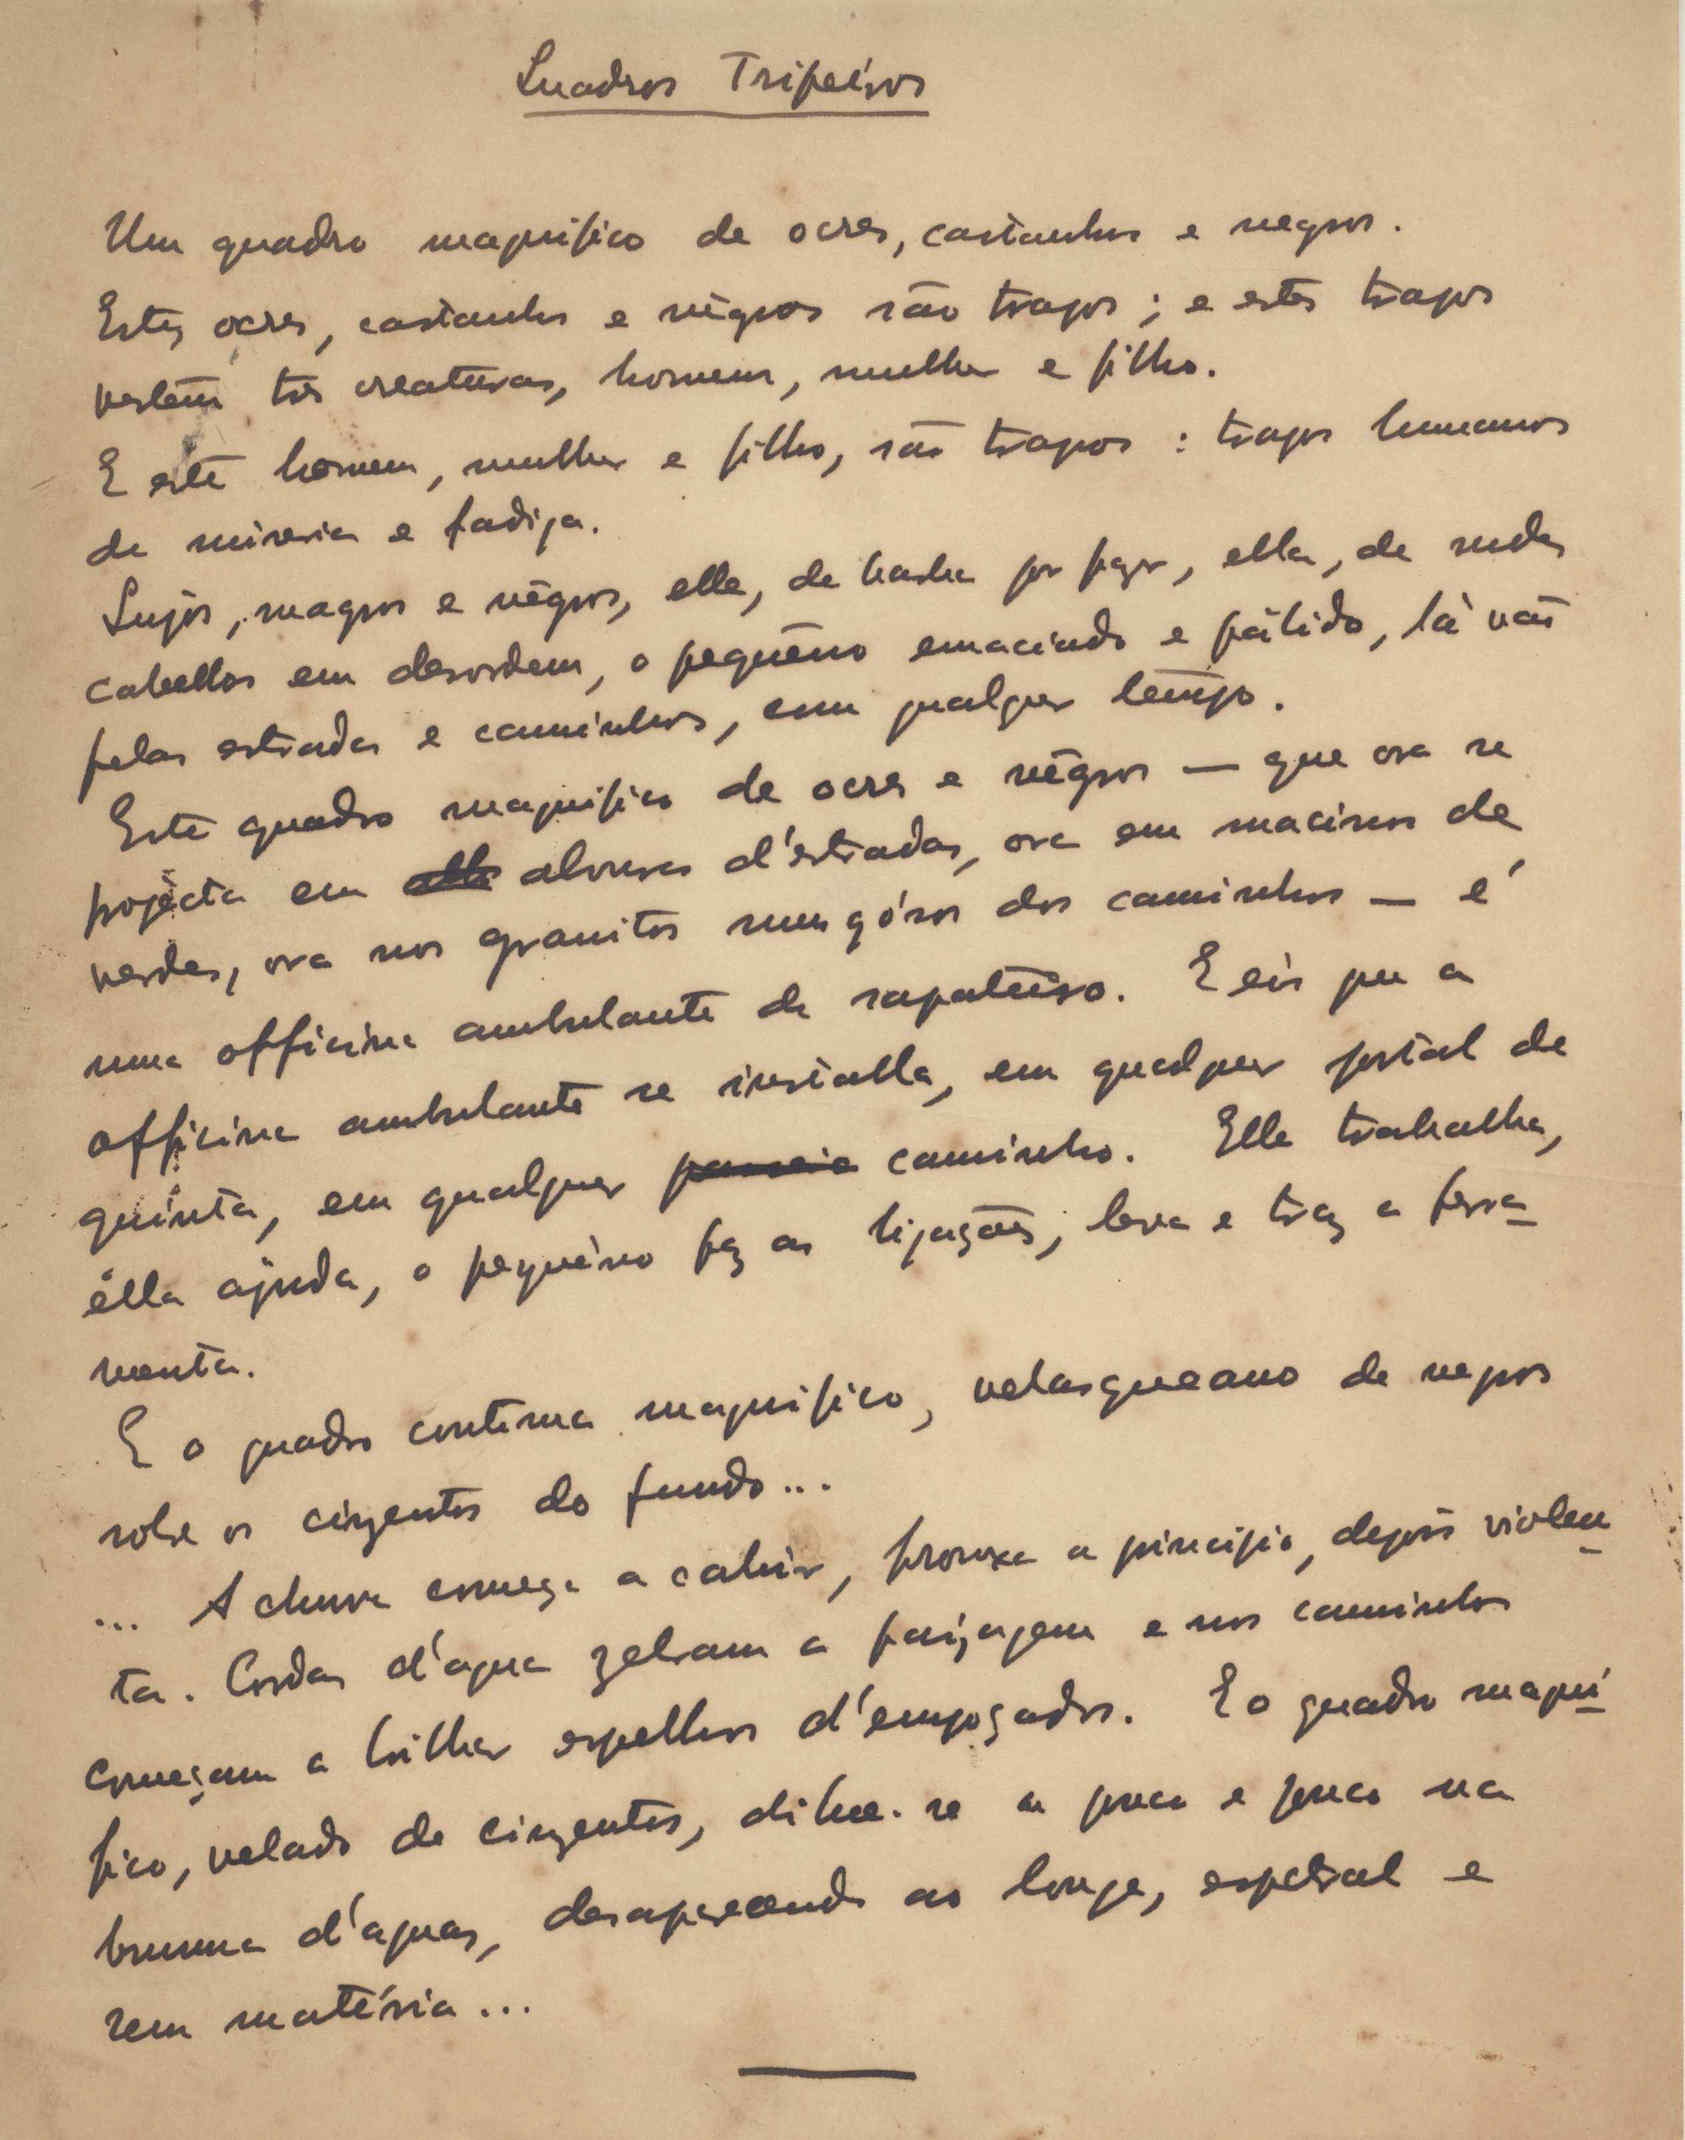 Quadros Tripeiros
Um quadro magnifico de ocres, castanhos e negros.
Estes ocres, castanhos e négros são trapos; e estes trapos
vestem três creaturas, homem, mulher e filho.
E este homem, mulher e filho, são trapos: trapos humanos
de miseria e fadiga.
Sujos, magros e négros, elle, de barba por fazer, ella, de rudes
cabellos em desordem, o pequeno emaciado e pálido, lá vão
pelas estradas e caminhos, com qualquer tempo.
Este quadro magnifico de ocres e négros — que ora se
projécta em alvuras d'estradas, ora em macissos de
verdes, ora nos granitos musgósos dos caminhos — é
uma officina ambulante de sapateiro. E eis que a
officina ambulante se installa, em qualquer portal de
quinta, em qualquer caminho. Elle trabalha,
élla ajuda, o pequeno faz as ligações, leva e traz a ferra-
menta.
E o quadro continua magnifico, velasqueano de negros
sobre os cinzentos do fundo...
... A chuva começa a cahir, frouxa a principio, depois violen-
ta. Cordas d'agua zebram a paizagem e nos caminhos
começam a brilhar espelhos d'empoçados. E o quadro magni-
fico, velado de cinzentos, dilue-se a pouco e pouco na
bruma d'aguas, desaparecendo ao longe, espectral e
sem matéria...